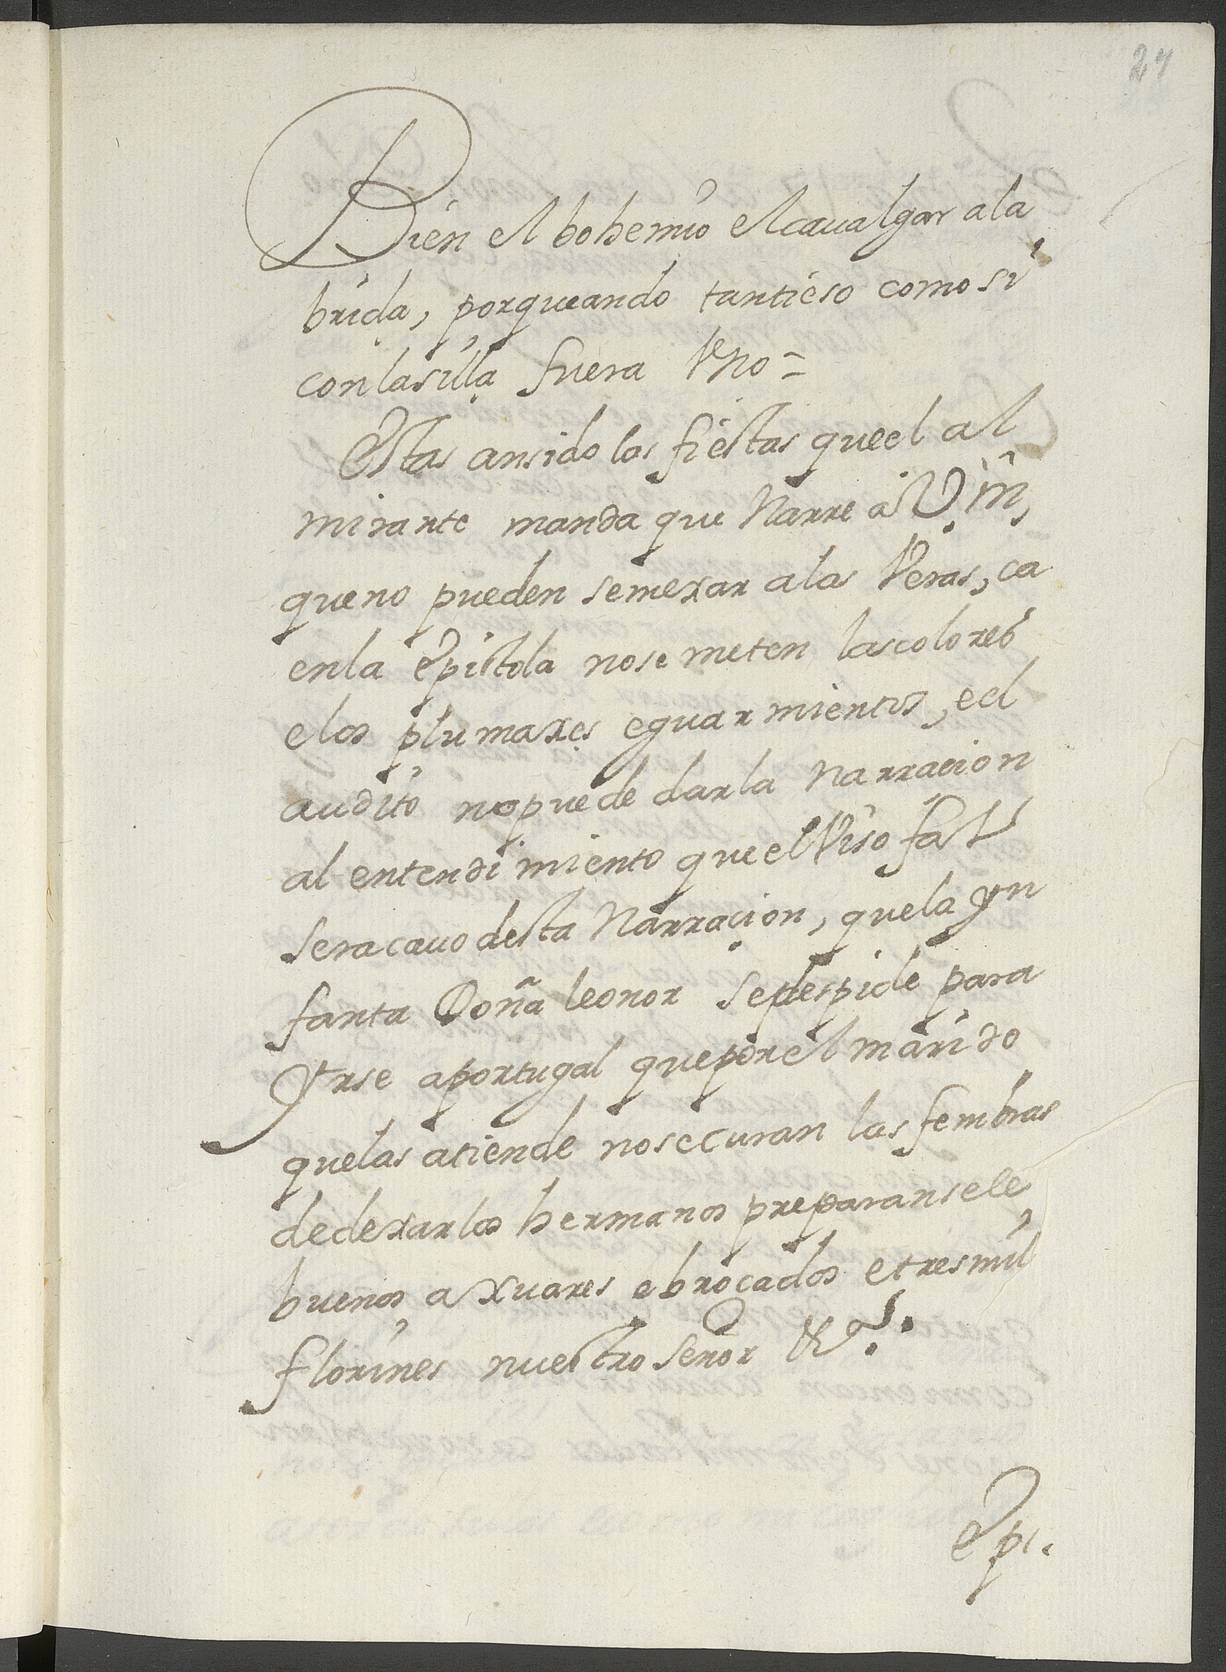 27
Bien el bohemio el caualgar ala
brida, porqueando tantieso como si
con la silla fuera Vno =
Estas ansido las fiestas queel al
mirante manda que Narre a V. m̃,
que no pueden semexar alas Veras, ca
enla epistola no se meten lascolores
elos plumaxes eguarmientos, eel
audito nopuede darla narracion
al entendimiento que el Viso fal
sera cauo desta Narracion, quela yn
fanta Doña leonor sedespide para
Yrse aportugal quepor el marido
quelas atiende nosecuran las fembras
dedexarlos hermanos preparansele
buenos axuares ebrocados etresmil
florines nuestro señor &ª.
Epi.